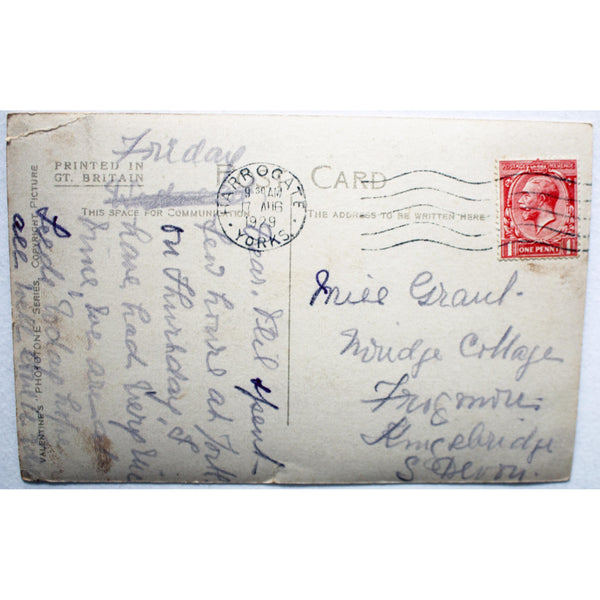 PRINTED IN
GT. BRITAIN
CARD
THIS SPACE FOR COMMUNICATION
THE ADDRESS TO BE WRITTEN HERE
VALENTINE'S "PHOTOTONE" SERIES. COPYRIGHT PICTURE
HARROGATE
9.30 AM
17 AUG
1929
YORKS.
POSTAGE REVENUE
ONE PENNY
Friday
Dear
spent
few hours at York
on Thursday, &
have had very
time, we are at
Leeds today
all
Miss Grant
Cottage
Frogmore
Kingsbridge
S Devon.